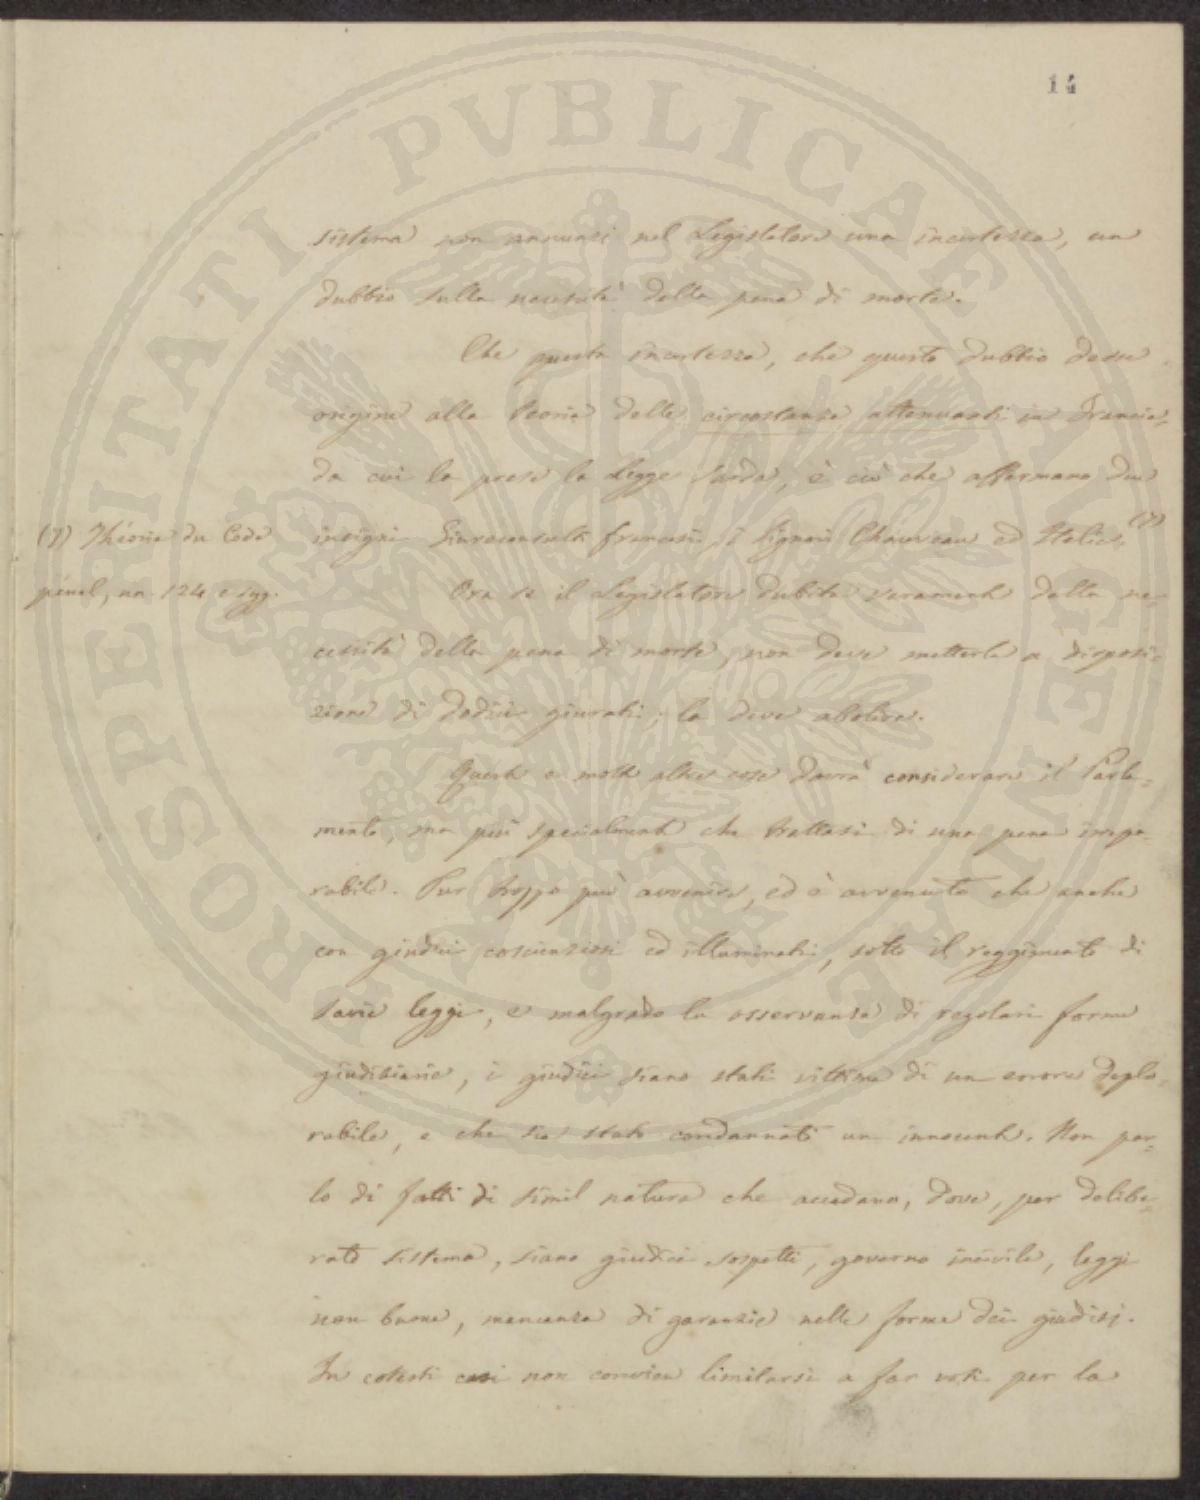 14
PROSPERITATI PVBLICAE AVGENDAE
sistema non annunzi nel Legislatore una incertezza, un
dubbio sulla necessità della pena di morte.
Che questa incertezza, che questo dubbio desse
origine alla teoria delle circostanze attenuanti in Francia,
da cui la prese la Legge Sarda, è ciò che affermano due
insigni Giureconsulti francesi, i Signori Chauveau ed Helie. (7)
(7) Théorie du Code
pénal, nn. 124 e sgg.
Ora se il Legislatore dubita veramente della ne-
cessità della pena di morte, non deve metterla a disposi-
zione di dodici giurati; la deve abolire.
Queste e molte altre cose dovrà considerare il Parla-
mento, ma più specialmente che trattasi di una pena irrepa-
rabile. Pur troppo può avvenire, ed è avvenuto che anche
con giudici coscienziosi ed illuminati, sotto il reggimento di
savie leggi, e malgrado la osservanza di regolari forme
giudiziarie, i giudici siano stati vittima di un errore deplo-
rabile, e che sia stato condannato un innocente. Non par-
lo di fatti di simil natura che accadano, dove, per delibe-
rato sistema, siano giudici sospetti, governo incivile, leggi
non buone, mancanza di garanzie nelle forme dei giudizj.
In cotesti casi non convien limitarsi a far voti per la